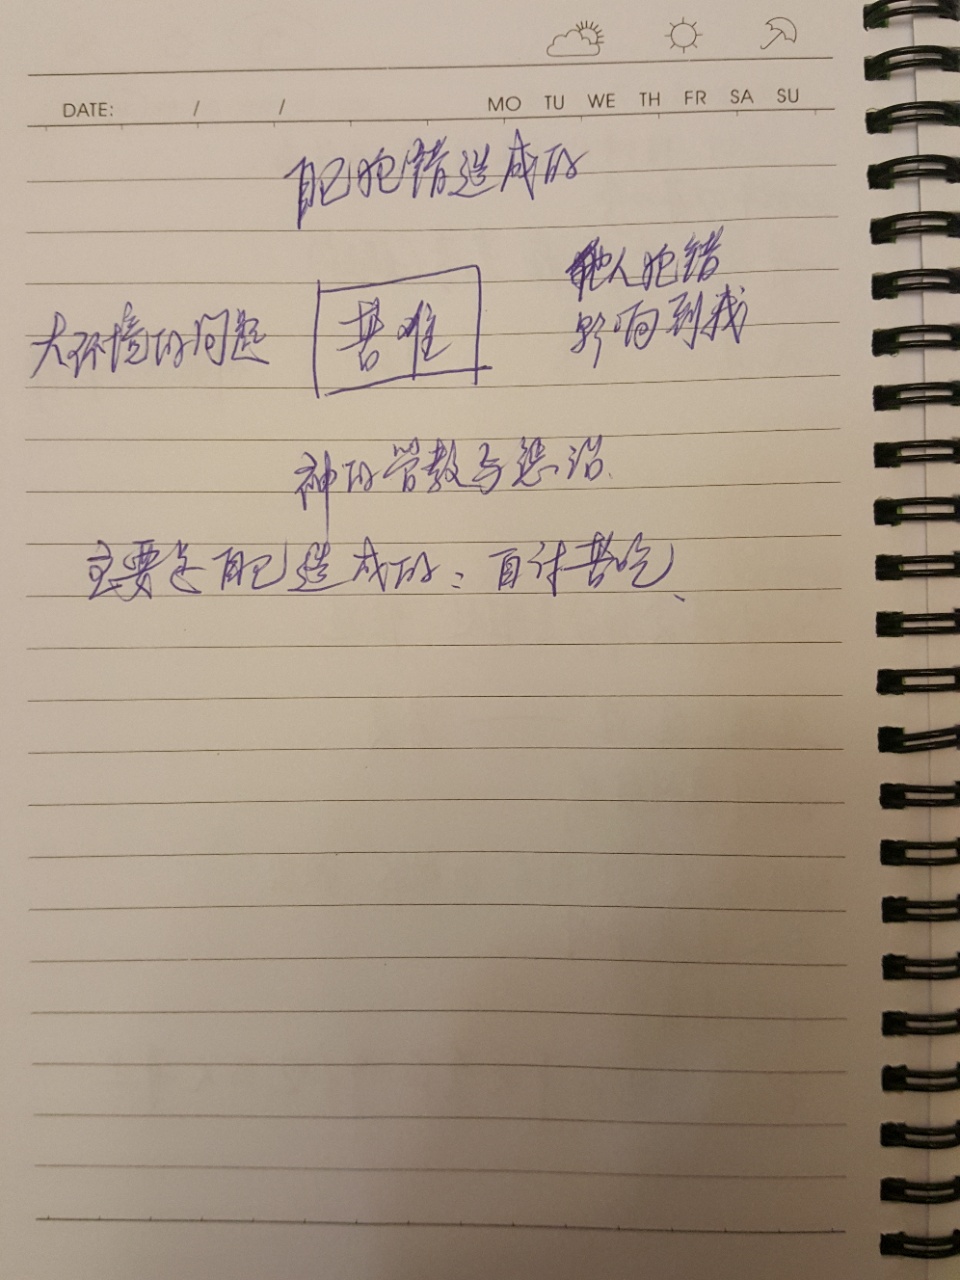 DATE: / / MO TU WE TH FR SA SU
自己犯错造成的
他人犯错
影响到我
大环境的问题
苦难
神的管教与惩治.
主要是自己造成的: 自讨苦吃、